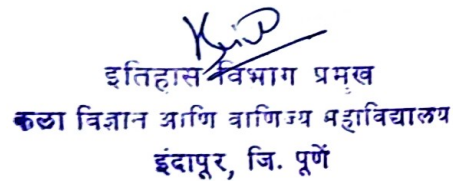 इतिहास विभाग प्रमुख
कळा विज्ञान आणि वाणिज्य महाविद्यालय
इंदापूर, जि. पूणें